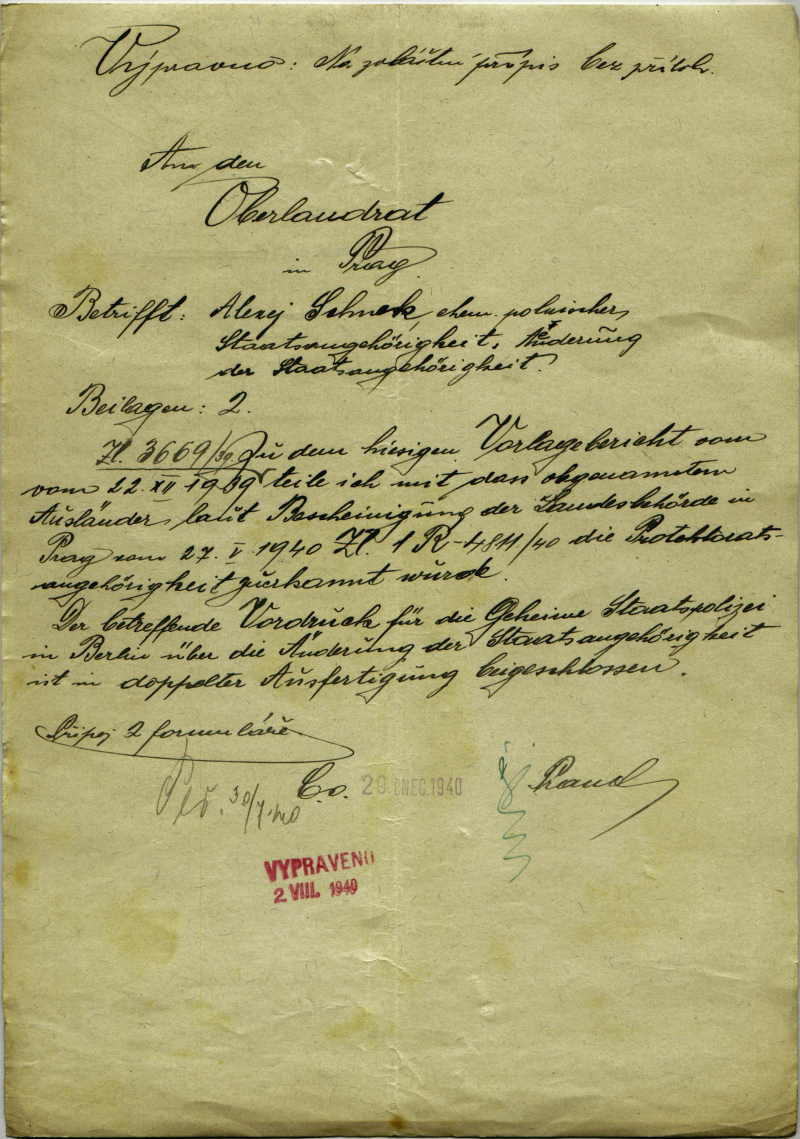 Výpravno: Na zvláštní přípis bez příloh.
An den
Oberlandrat
in Prag
Betrifft: Alexej Schnek, ehem. polnischer
Staatsangehörigkeit, Änderung
der Staatsangehörigkeit.
Beilagen: 2.
Zl. 3669/39 Zu dem hiesigen Vorlagebericht vom
vom 22. XII 1939 teile ich mit, dass obgenanntem
Ausländer laut Bescheinigung der Landesbehörde in
Prag vom 27. V. 1940 Zl. 1 R-4811/40 die Protektorats-
angehörigkeit zuerkannt wurde.
Der betreffende Vordruck für die Geheime Staatspolizei
in Berlin über die Änderung der Staatsangehörigkeit
ist in doppelter Ausfertigung beigeschlossen.
Připoj 2 formuláře.
Č.o. 29. 1940
30/7.40
VYPRAVENO
2. VIII. 1940